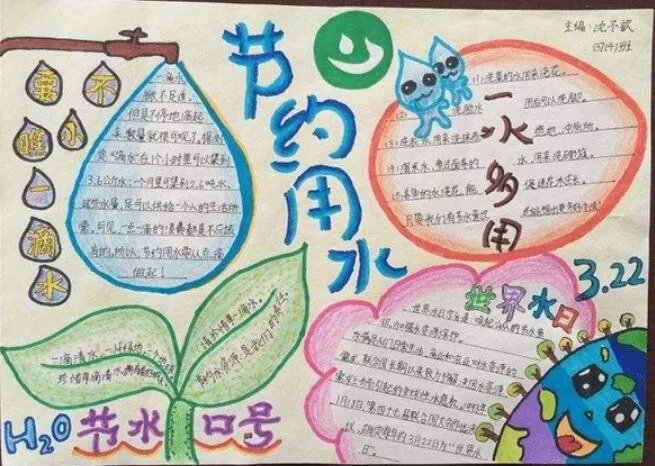 主编：沈予歆
四(4)班
节约用水
要不
瞧小
一
滴
水
一滴水，
微不足道。
但是不停地滴起
来，数量就很可观了。据测
定"滴水"在1个小时里可以集到
3.6公斤水；一个月里可集到2.6吨水。
这些水量，足可以供给一个人的生活所
需。可见，一点一滴的浪费都是不应该
有的。所以，节约用水要从点滴
做起！
一水多用
(1)洗菜的水用来浇花。
(2)
洗脸水
用后可以洗脚
(3)
(4)淘米水
水，用来洗碗筷
(5)养鱼的水浇花，能
促进花木生长。
只要我们有节水意识
世界水日
3.22
世界水日宗旨是：唤起公众的节水意
识，加强水资源保护。
为满足人们日常生活、商业和农业对水资源的
需求，联合国长期以来致力于解决因水资源
需求上升而引起的全球性水危机。1993年
1月18日，第四十七届联合国大会作出决
议，确定每年的3月22日为"世界水
日"。
一滴清水，一片绿地，一个地球
珍惜每滴清水
请珍惜每一滴水。
节约水资源，是我们的责任。
H2O 节水口号